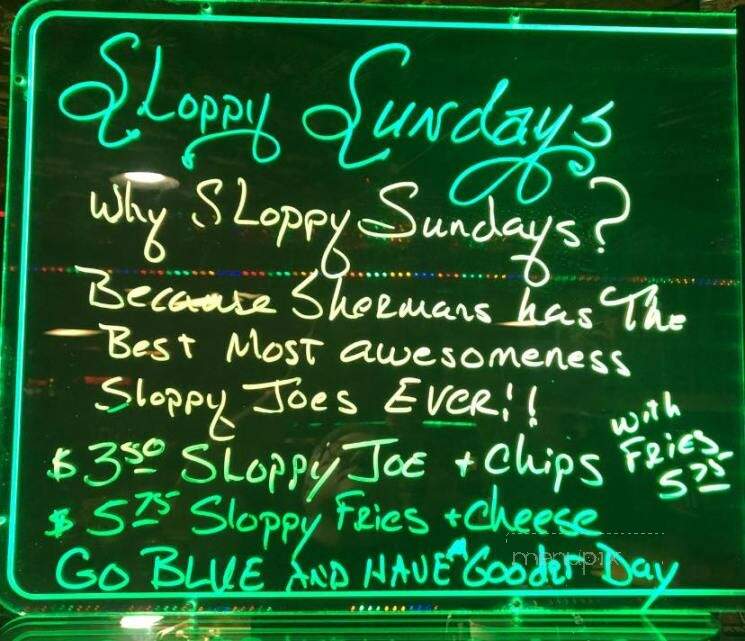 Sloppy Sundays
Why Sloppy Sundays?
Because Shermans has The
Best Most awesomeness
Sloppy Joes EVER!!
$3.50 Sloppy Joe + Chips
with
Fries
5.75
$5.75 Sloppy Fries + Cheese
GO BLUE AND HAVE A Gooder Day
menupix